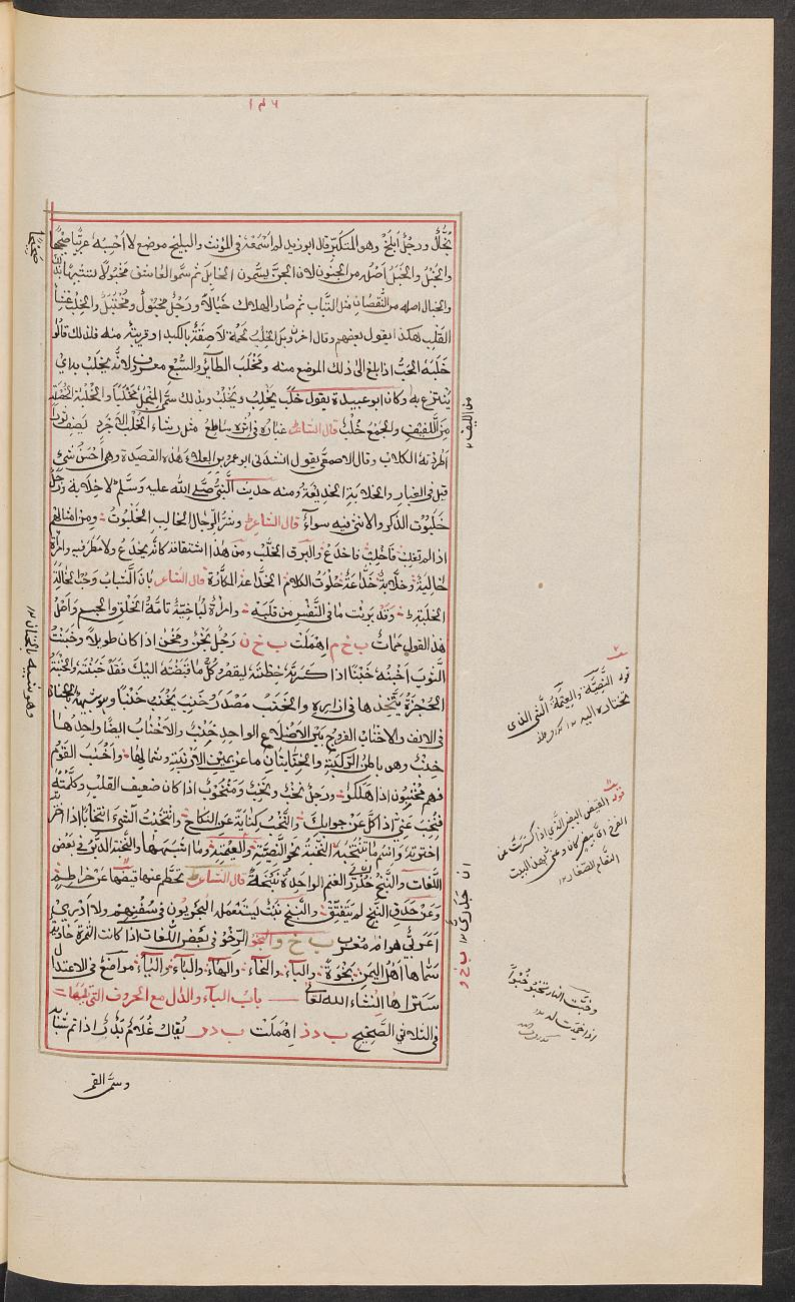 ١٤٦
بَخّالٌ ورجُلٌ اَبلَخُ وهو المتكبّر قال ابوزيد لم اَسْمَعْهُ فى المؤنث والبليخ موضع لا اَحْسِبُهُ عربيًّا صَحِيْحًا
والخَبْلُ والخَبَلُ اَصْلُه من الجنون لان الجنّ يسمّون الخابل ثم سمّوا العاشق مَخْبُولًا لتشبيهها بذلك
والخبال اصله من النُّقْصَان مثل التَّباب ثم صار الهلاك خَبَالًا ورَجُلٌ مَخْبُولٌ ومُخْتَبَلٌ والخِلْبُ غشاءُ
القلب هكذا يقول بعضهم وقال اخرون بل الخِلْبُ لَحمة لَاصِقَةٌ بالكبد او قريبة منه فلذلك قالوا
خَلَبَهُ الحُبُّ اذا بلغ الى ذلك الموضع منه ومَخْلَب الطائر والسَّبُع معروف لانّه يَخْلِبُ به اي
يَنْتَزِعُ به وكان ابوعبيدة يقول خَلَبَ يَخْلِبُ ويَخْلُبُ وبذلك سمّى المِنْجَل مِخْلَبًا والخُلْبَة الخُصْلَة
من اللِّيف والجَمْع خُلْبٌ قال الشاعر غبارُهُ فى اثره ساطع مثل رشاء الخُلْب الاَجْرَد يَصِفُ ثَورًا
اطردته الكلاب وقال الاصمعىّ يقول انشدنى ابوعمرو بن العلاء هذه القصيدة وهى اَحْسَنُ شىء
قيل فى الغبار والخلابة الخديعة ومنه حديث النَّبىّ صلّى الله عليه وسَلّم لا خِلابة ورجُلٌ
خَلَبُوت الذكر والانثى فيه سواءٌ قال الشاعر وشرُّ الرِّجال الخالب الخَلَبُوتُ ومن امثالهم
اذا لم تَغْلِب فَاخْلُب فاخدع والبرق الخُلَّب ومن هذا اشتقاقه كانّه يخدع ولا مطر فيه وامراة
خالبة وخلّابة خَدَّاعَة خَلُوبُ الكلام الخدّاعة المكّارة قال الشاعر بانَ الشَّبابُ وحُبُّ الخالةِ
الخلبة وقد بَرِئتُ ما فى النَّفسِ من قَلَبَه وامراةٌ لُبَاخِيَّةٌ تامّة الخَلْق والجسم واَصْلُ
هذا القول مُمَاتٌ ب خ م اُهْمِلَت ب خ ن رَجُلٌ بَخْنٌ ومَخْنٌ اذا كان طويلًا وخَبَنْتُ
الثَّوبَ اَخْبِنُه خَبْنًا اذا كسرته وخِطْتَه ليقصر وكلُّ ما قبضته اليك فَقَدْ خَبَنْتَه والخُبْنَةُ
الحُجْزَةُ يَتَّخِذُها فى ازاره والخَنَبُ مَصْدَرُ خَنِبَ يَخْنَبُ خَنَبًا وهو شبيه بالخنان
فى الانف والاَخْناب الفروج بَيْن الاَضْلاع الواحد خِنْبٌ والاَخْنابُ ايضًا واحدُها
خِنْبٌ وهو باطن الرُّكبة والخِنّابتانِ ما عن يمين الاَرْنَبَة وشمالها واَخْنَبَ القَوْمُ
فهم مُخْنِبُونَ اذا هَلكوا ورجلٌ نَخْبٌ ونَخِبٌ ومَنْخُوبٌ اذا كان ضعيف القلب وكلّمتُه
فنَخِبَ عَنّى اذا كلَّ عن جوابك والنَّخْب كِنَايَة عن النِّكَاح وانْتَخَبْتُ الشَّىءَ انتخابًا اذا اخترته
اخترته وانّه ما نُتِخَبَهُ النُّخْبَة نحو النَّصِيَّة والعِيْمَة وما اشبهها والنَّخْبَة الدُّبُر فى بَعْض
اللّغات والنَّبْخ جُدَرِىُّ الغنم الواحدة نَبْخَة قال الشاعر تَحَطَّم عنها قَيْضُها عن خراطمٍ
وعَنْ حَدَقٍ كالنَّبْخ لم يَتَفَتَّقِ والبَنْج نَبْتٌ يَسْتَعْمِلُه البحريون فى سُفُنِهم ولا اَدْرِى
اَعَرَبِىٌّ هو ام مُعَرَّب ب خ و البَخْوُ الرِّخْوُ فى بعض اللّغات اذا كانت الثمرة خاوية
سمّاها اَهْلُ اليمن بَخْوَةً والباء والخاء والهاء والباء والياء مواضع فى الاعتدال
ستراها اِنْشاء الله تعالى — باب الباء والدّال مع الحروف التى تليهما =
فى الثلاثى الصَّحِيح ب د ذ اُهْمِلَت ب د ر يُقالُ غُلَامٌ بَدْرٌ اذا تمّ شبابه
وسمّى القمر
صَحِيْحًا
من الليف ١٢
وهو شبيه بالخنان ١٢
ب خ و
قوله النَّصِيّة والعِيْمة الّشىء الذى
يختاره اليه ١٢
قوله القيض البيض الّذى اذا كسرت عن
الفرخ
النعام الصّغار ١٢
وخَبَتِ النّار تَخْبُو خُبُوًّا
اذا خمدت